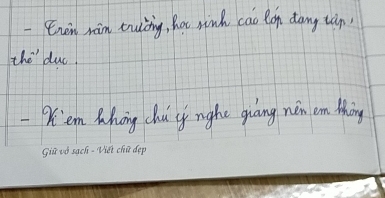 - Trên sân trường, học sinh các lớp đang tập
thể dục.
- Vì em không chú ý nghe giảng nên em không
Giữ vở sạch - Viết chữ đẹp